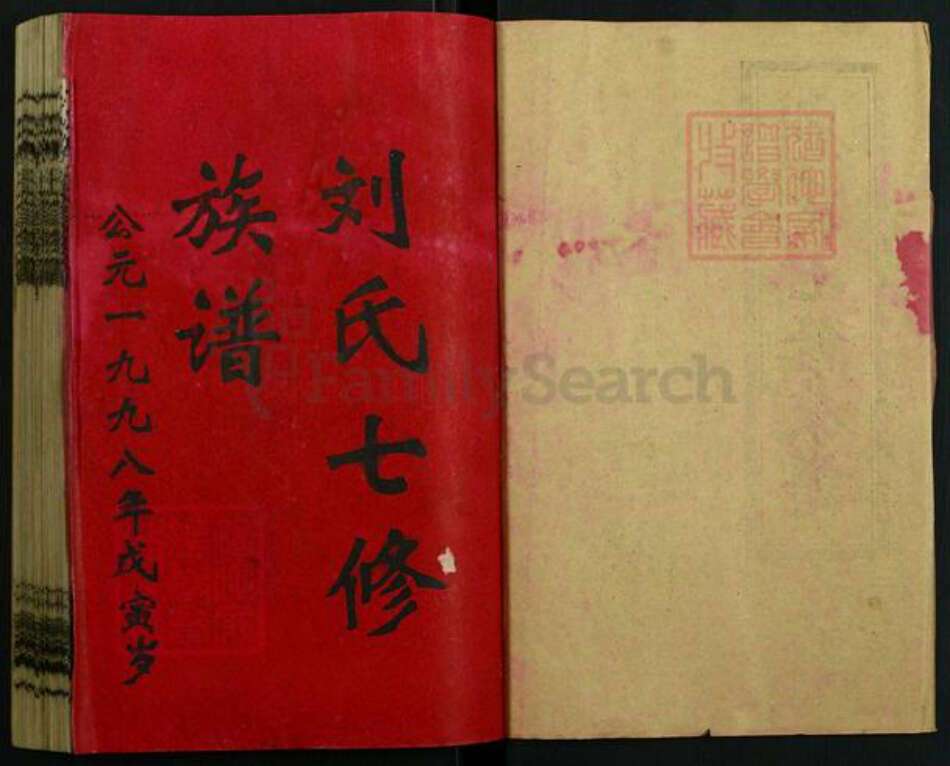 刘氏七修
族谱
公元一九九八年戊寅岁
FamilySearch